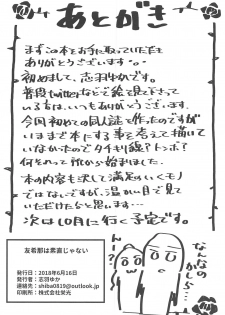 あとがき
まずこの本をお手に取っていただき
ありがとうございます
初めまして、志羽ゆかです。
普段twitterなどで絵を見て下さって
いる方は、いつもありがとうございます。
今回初めての同人誌を作ったのですが
いままで本にする事を考えて描いて
いなかったのでタチキリ線？トンボ？
何それって所から始まりました。
本の内容も決して満足のいくモノ
ではないですが、温かい目で見て
いただけたらと思います…
次は10月に行く予定です。
なんなの
かしら…
んー？
友希那は素直じゃない
発行日：2018年6月16日
発行者：志羽ゆか
連絡先：shiba0819@outlook.jp
印刷所：株式会社栄光